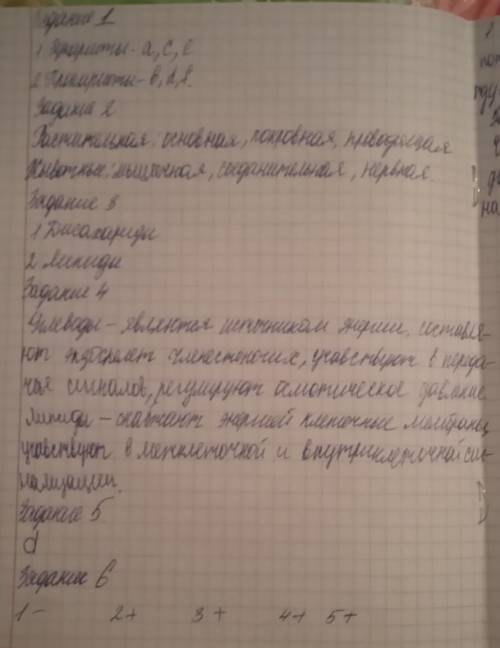 Задание 1
1 Эукариты - а, с, е
2 Прокариты - в, d, f.
Задание 2
Растительная: основная, покровная, проводящая
Животные: мышечная, соединительная, нервная.
Задание 3
1 Дисахариды
2 Липиды
Задание 4
Углеводы - являются источником энергии, составля-
ют экзоскелет членестоногих, учавствуют в переда-
чья сигналов, регулируют осмотическое давление
Липиды - снабжают энергией клеточные мембраны,
учавствуют в межклеточной и внутриклеточной сиг-
нализации.
Задание 5
d
Задание 6
1 - 2+ 3+ 4+ 5+